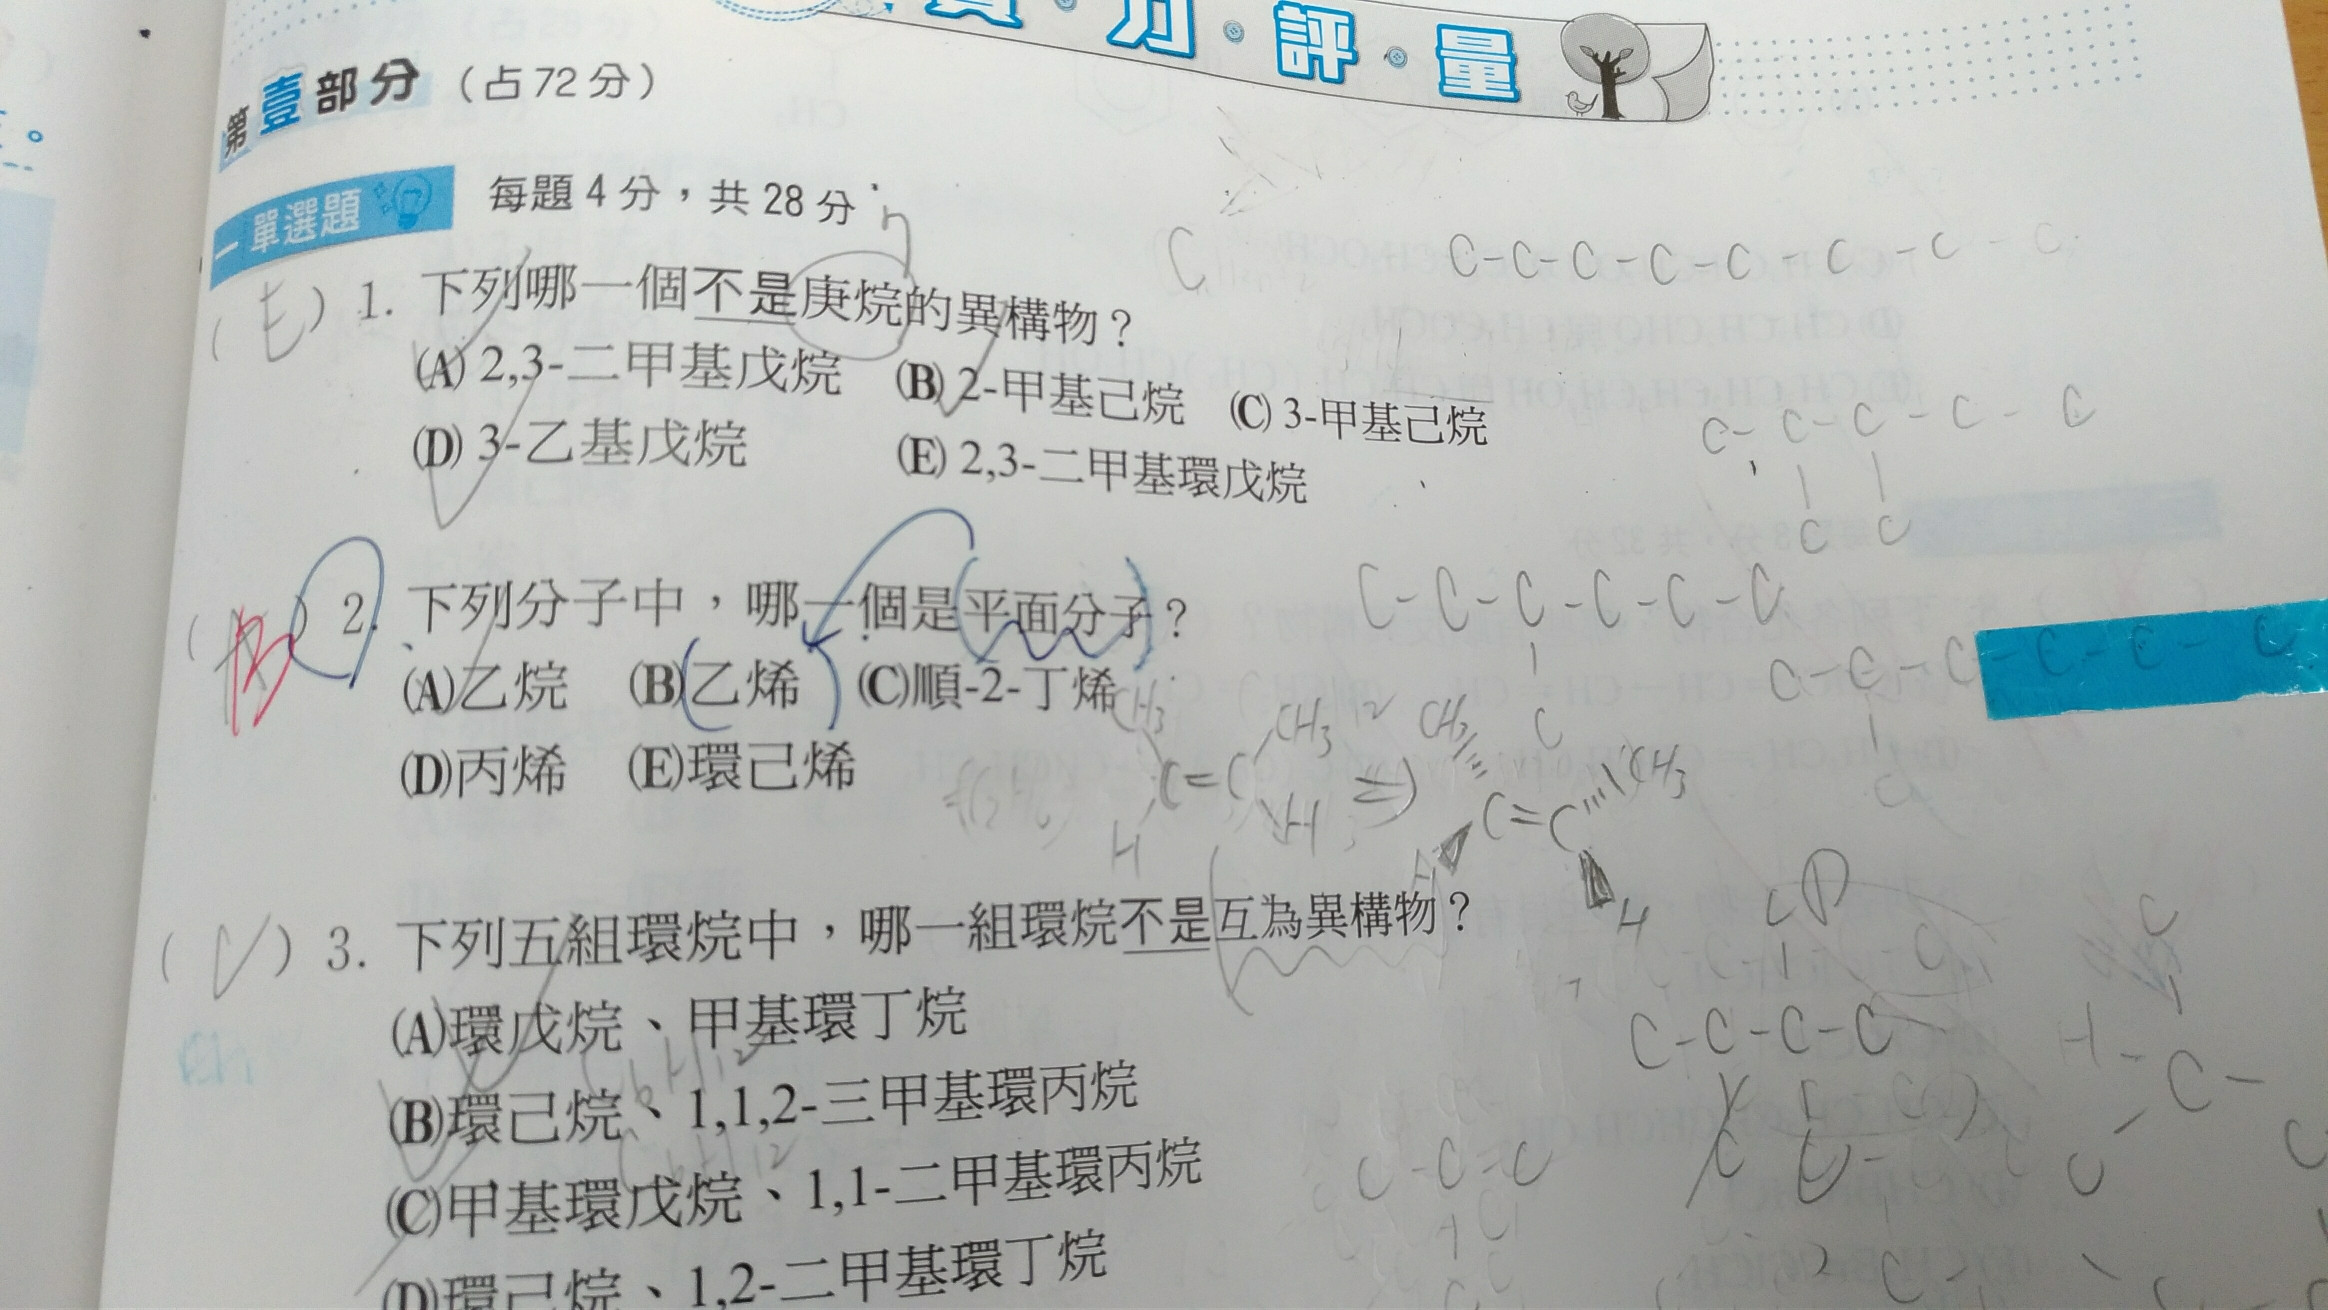 力·評·量
第壹部分（占72分）
一 單選題 每題4分，共28分
(E) 1. 下列哪一個不是庚烷的異構物？
(A) 2,3-二甲基戊烷 (B) 2-甲基己烷 (C) 3-甲基己烷
(D) 3-乙基戊烷 (E) 2,3-二甲基環戊烷
(B) 2. 下列分子中，哪一個是平面分子？
(A)乙烷 (B)乙烯 (C)順-2-丁烯
(D)丙烯 (E)環己烯
(C) 3. 下列五組環烷中，哪一組環烷不是互為異構物？
(A)環戊烷、甲基環丁烷
(B)環己烷、1,1,2-三甲基環丙烷
(C)甲基環戊烷、1,1-二甲基環丙烷
(D)環己烷、1,2-二甲基環丁烷
C
C-C-C-C-C-C-C-C
C-C-C-C-C
C C
C-C-C-C-C-C
C
C-C-C-C-C-C
C
CH3 CH3
C=C
H H
CH3 CH3
C=C
H H
C6H12
C6H12
C-C-C-C
C-C=C
H-C-